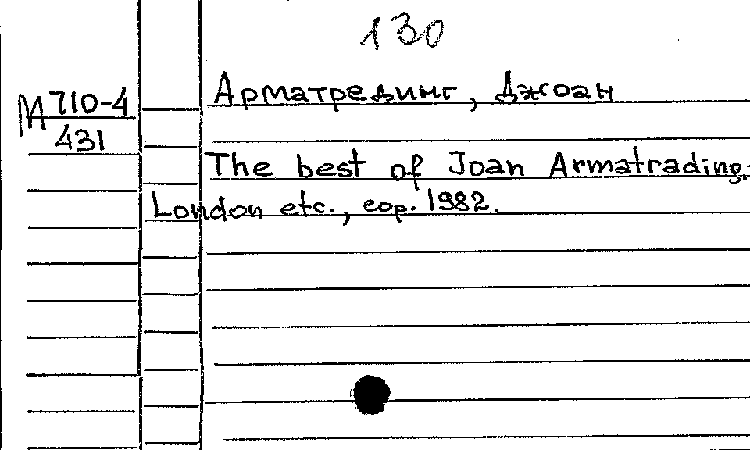 130
М 710-4
431
Армтрединг, Джоан
The best of Joan Armatrading.
London etc., cop. 1982.